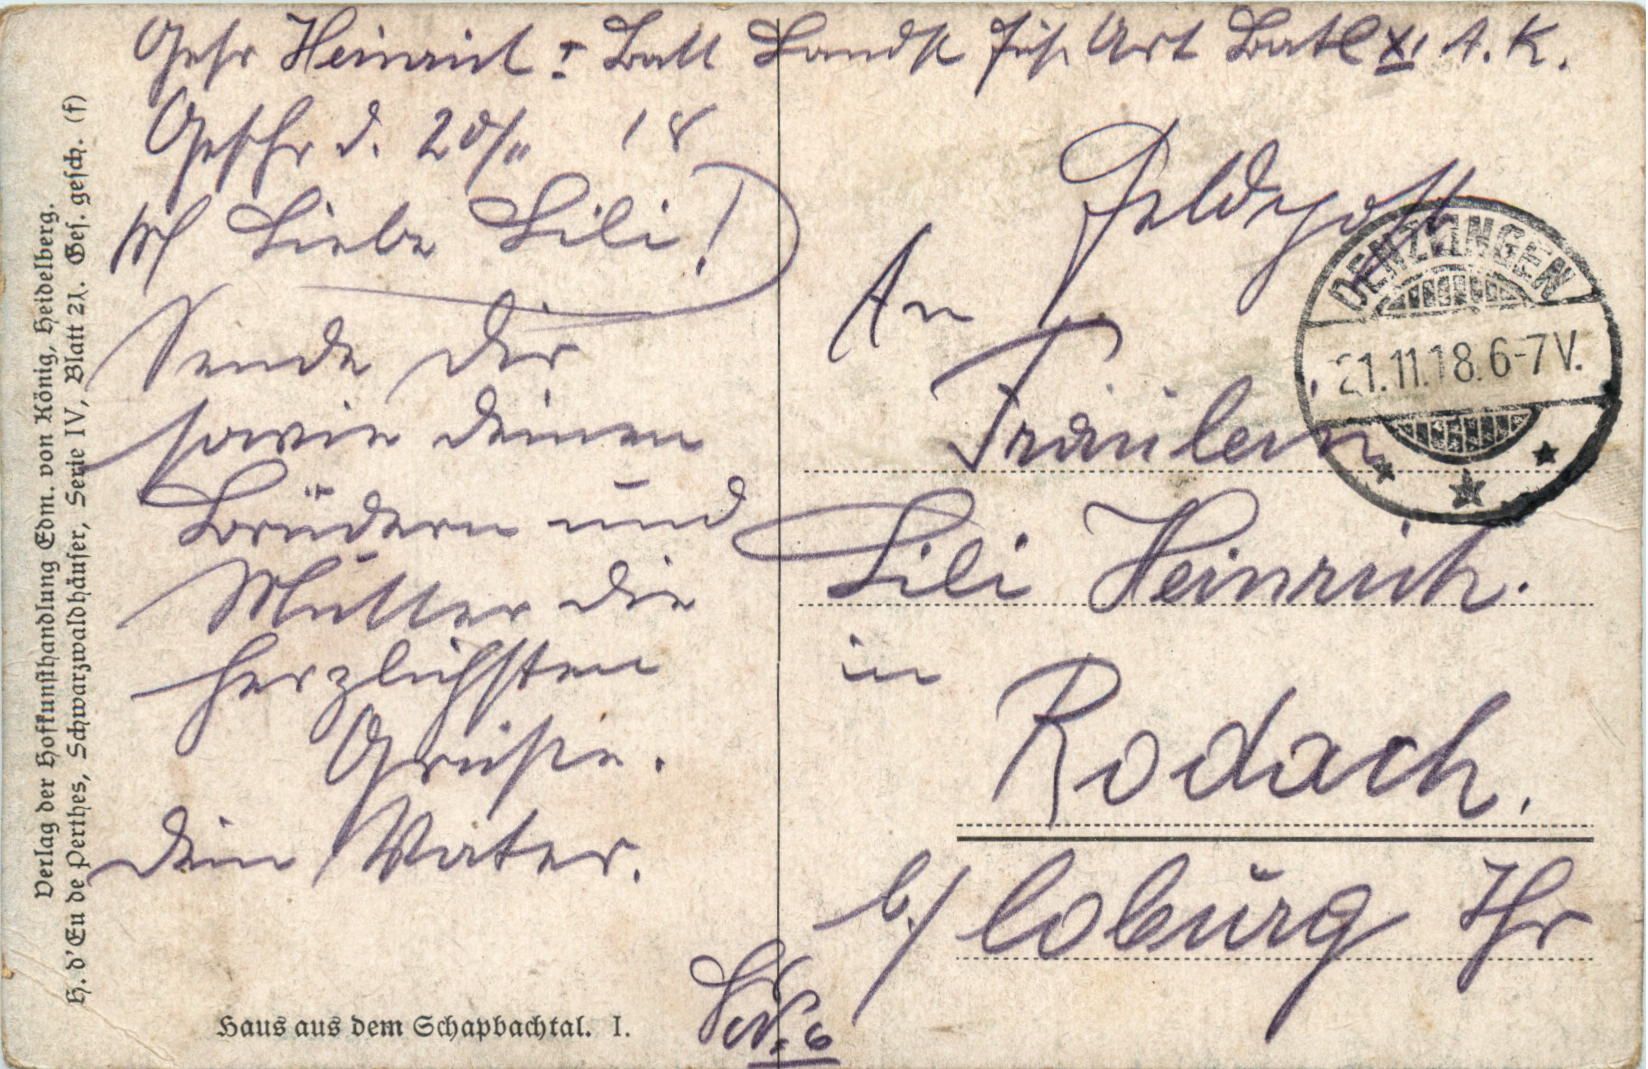 Gefr Heinrich I Batt Landst Fuß Art Batl XI A. K.
Geschr d. 20/11 18
Liebe Lili!
Sende Dir
sowie deinen
Brüdern und
Mutter die
herzlichsten
Grüße.
Dein Vater.
Feldpost
An
Fräulein
Lili Heinrich.
in
Rodach.
b/ Coburg Thr
No. 6
DENZLINGEN
21.11.18.6-7V.
Haus aus dem Schapbachtal. I.
Verlag der Hofkunsthandlung Edm. von König, Heidelberg.
H. d'Eu de Perthes, Schwarzwaldhäuser, Serie IV, Blatt 21. Ges. gesch. (f)